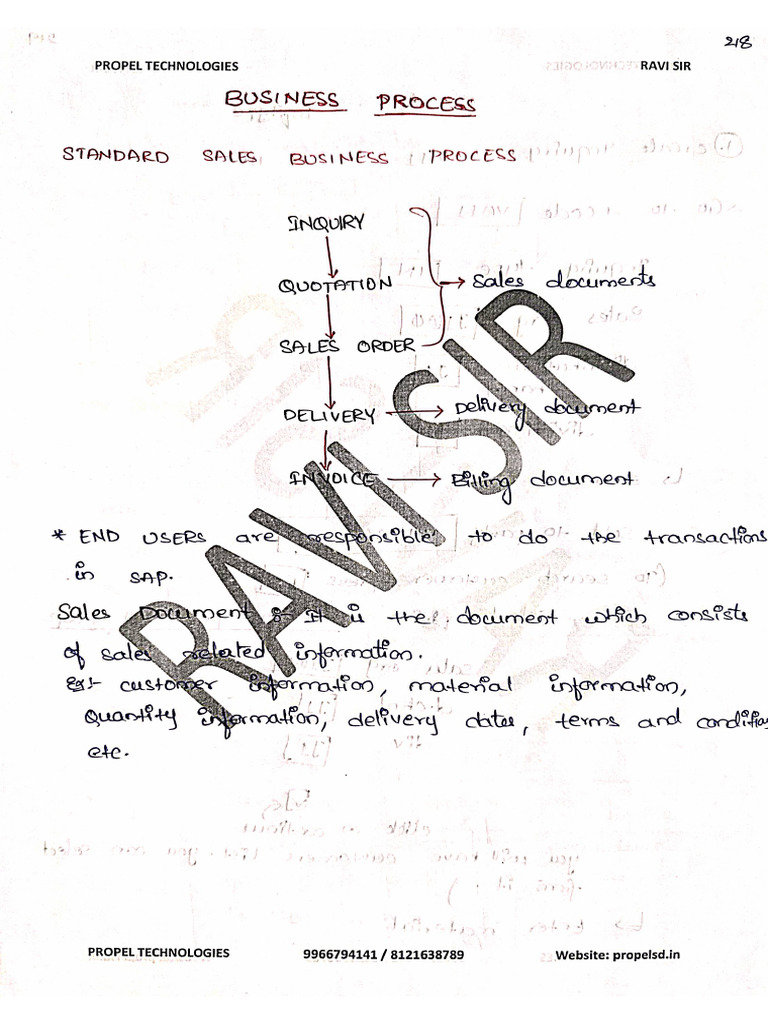 218
PROPEL TECHNOLOGIES RAVI SIR
BUSINESS PROCESS
STANDARD SALES BUSINESS PROCESS
INQUIRY
QUOTATION → Sales documents
SALES ORDER
DELIVERY → Delivery document
INVOICE → Billing document
* END USERS are responsible to do the transactions
in SAP.
Sales Document :- It is the document which consists
of sales related information.
Ex:- customer information, material information,
Quantity information, delivery dates, terms and conditions
etc.
RAVI SIR
PROPEL TECHNOLOGIES 9966794141 / 8121638789 Website: propelsd.in